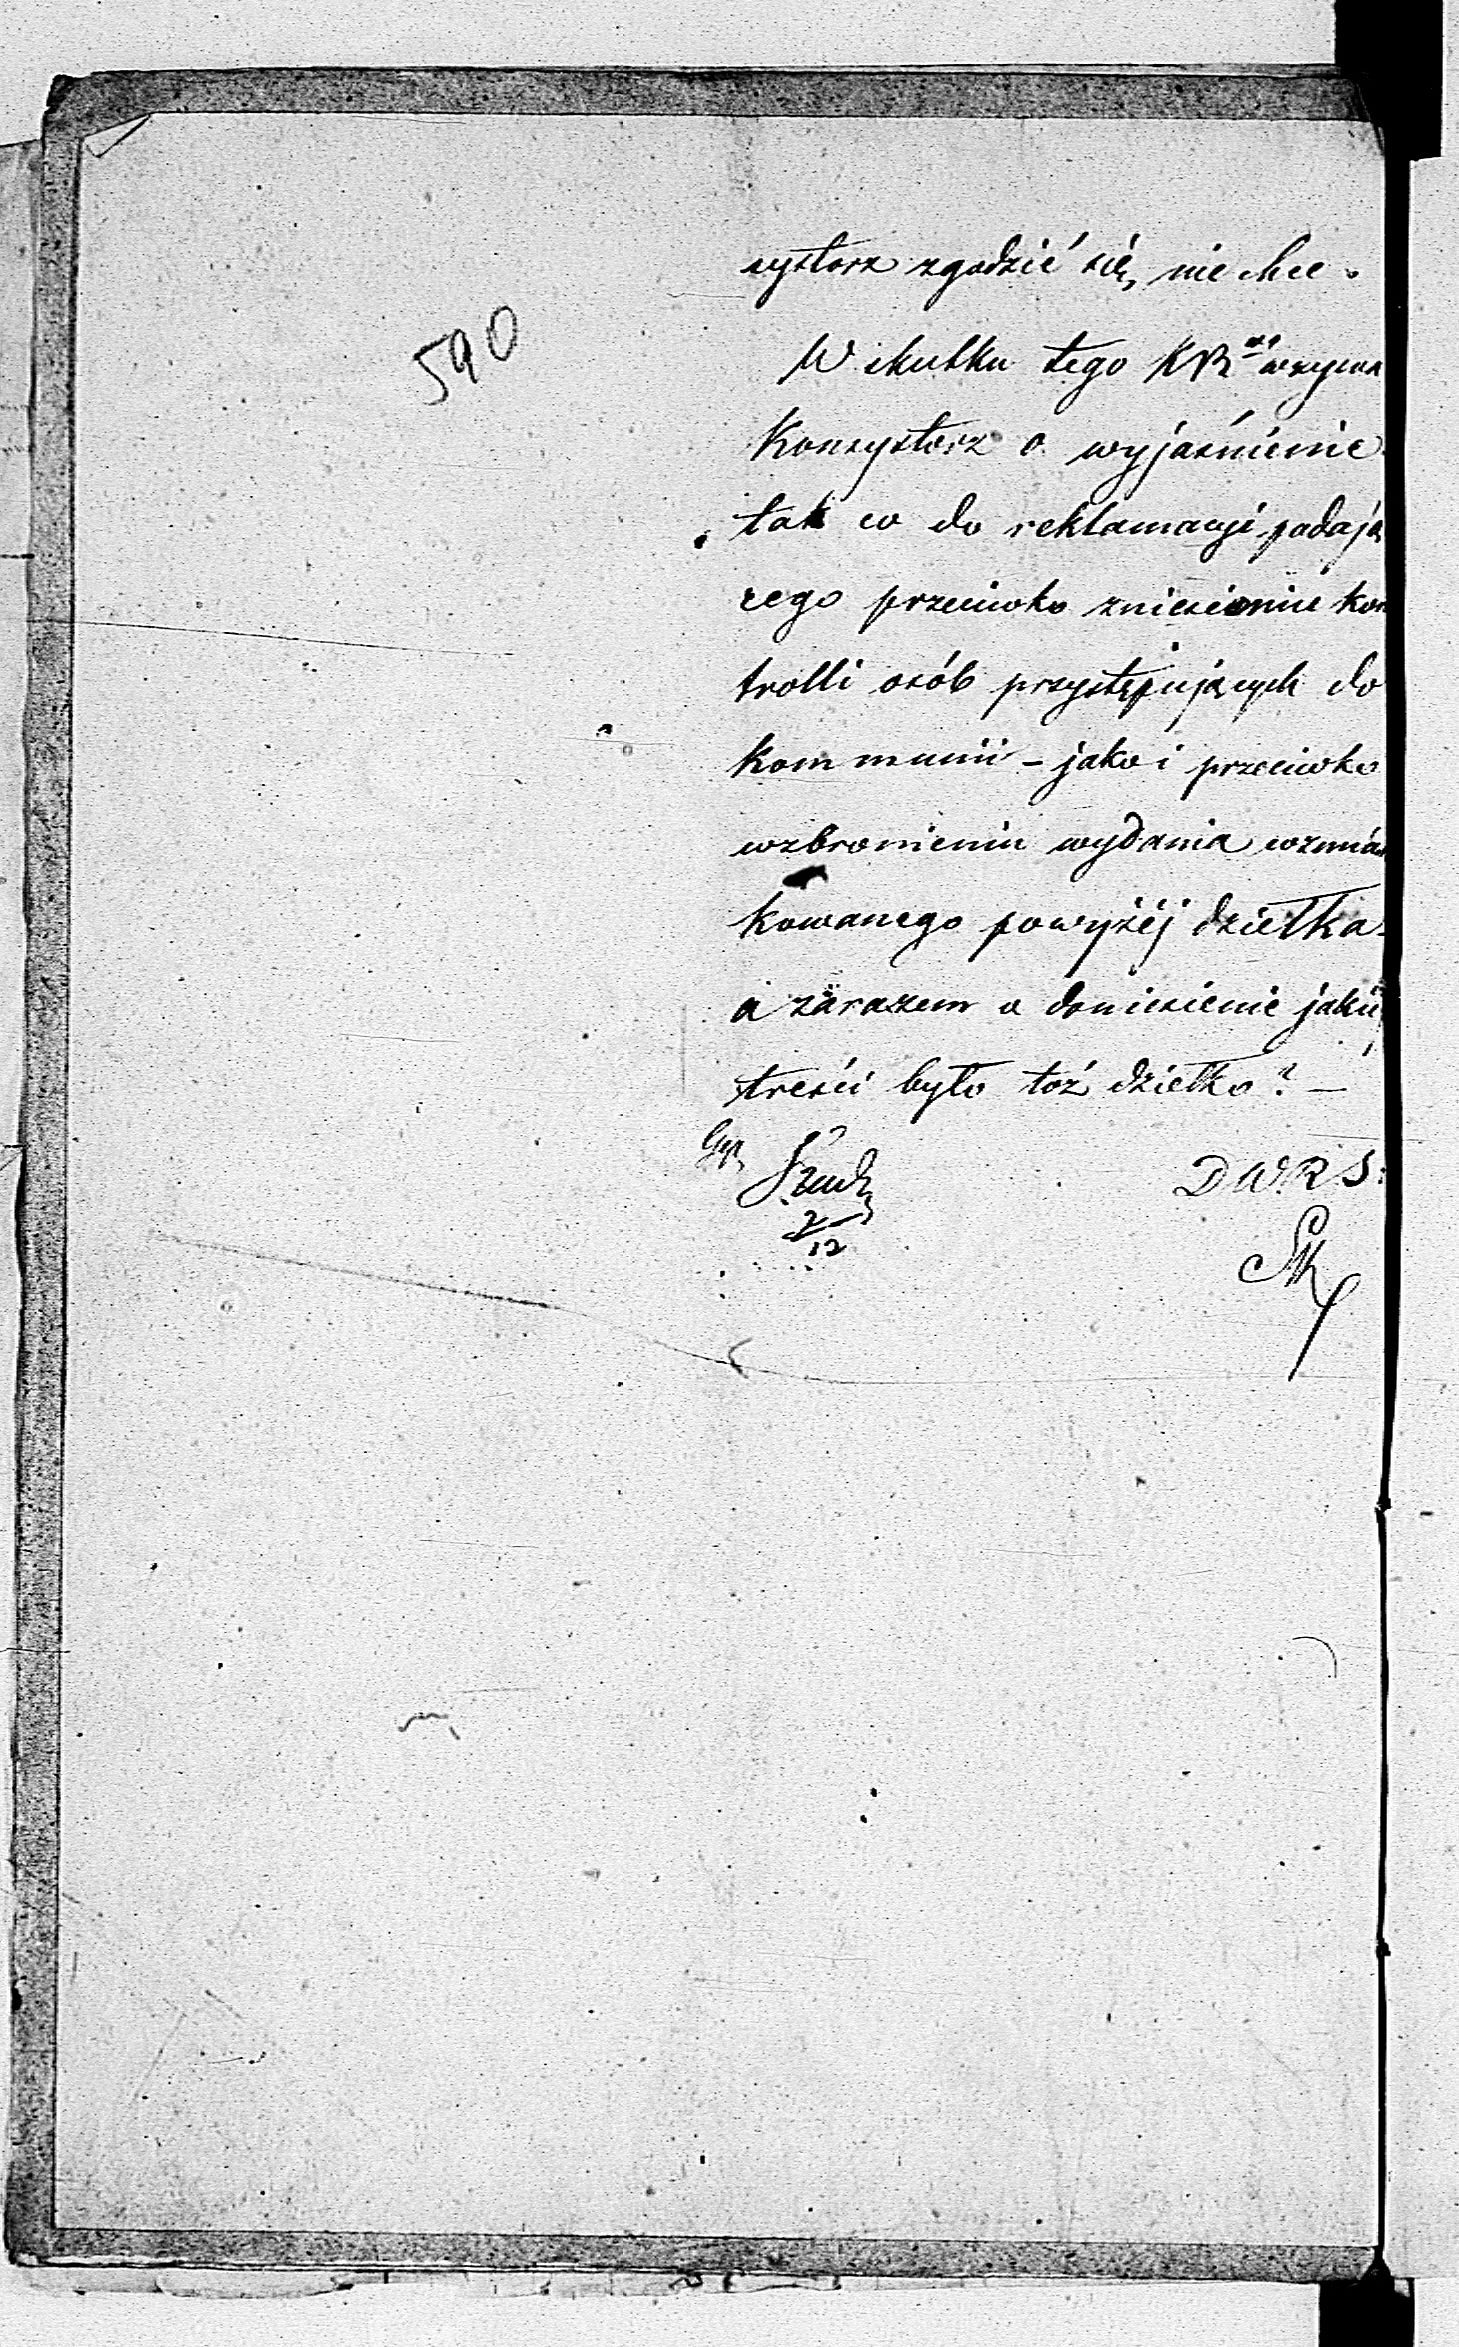 590
systorz zgodzić się nie chce.
W skutku tego KR wzywa
Konsystorz o wyjaśnienie
tak co do reklamacyi podają
cego przeciwko zniesieniu kon
trolli osób przystępujących do
kommunii – jako i przeciwko
wzbronieniu wydania wzmian
kowanego powyżéj dziełka
a zarazem o doniesienie jakiej
treści było toż dziełko? –
DWRS:
2/12